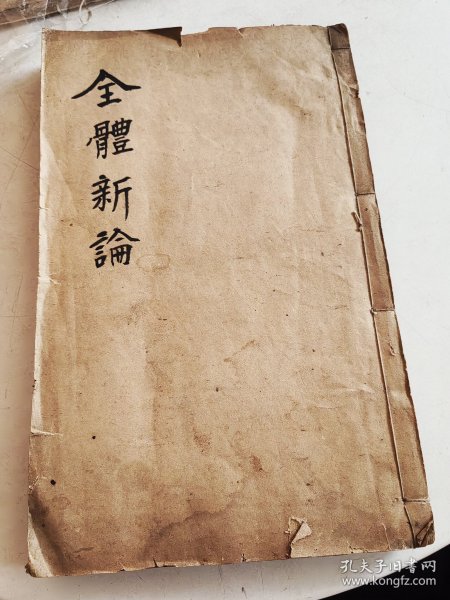 全體新論
孔夫子旧书网
www.kongfz.com